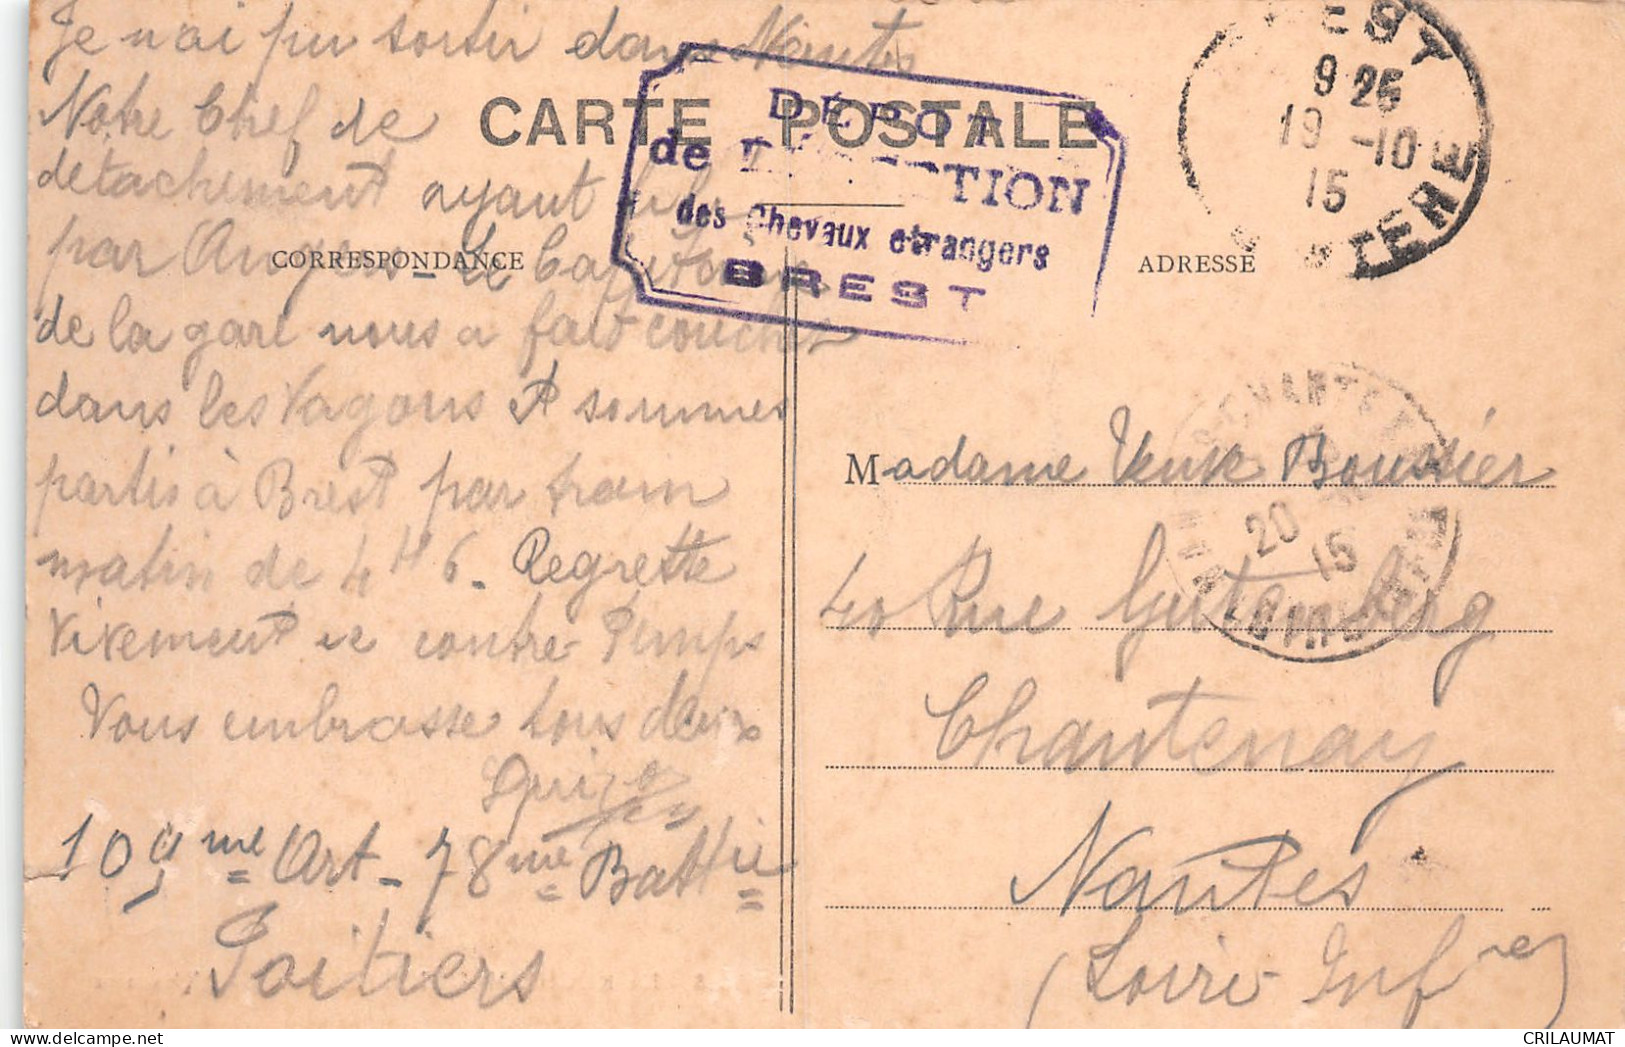 Je n'ai pu sortir dans Nantes
Notre Chef de
détachement ayant
par Angers - le Cap
de la gare nous a fait coucher
dans les Vagons et sommes
partis à Brest par train
matin de 4 H 6. Regrette
vivement ce contre-temps
Vous embrasse tous deux
109me Art - 78me Battie
Poitiers
CARTE POSTALE
CORRESPONDANCE
ADRESSE
DÉPOT
de TION
des Chevaux etrangers
BREST
EST
9 25
19 -10
15
STERE
Madame Veuve Boussier
40 Rue Gutenberg
Chantenay
Nantes
(Loire Infre)
CHANTE
20
15
CRILAUMAT